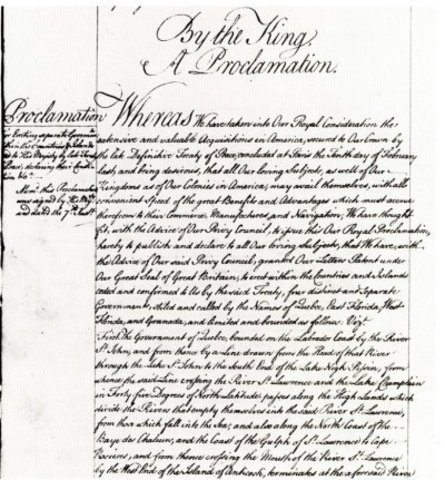 By the King.
A Proclamation.
Proclamation
for Erecting separate Governm.
their Boundaries
Mem. this Proclamation
was signed by His Maj.
and dated the 7th
Whereas We have taken into Our Royal Consideration the
extensive and valuable Acquisitions in America, secured to Our Crown by
the late Definitive Treaty of Peace, concluded at Paris the Tenth day of February
last; and being desirous, that all Our loving Subjects, as well of Our
Kingdoms as of Our Colonies in America, may avail themselves, with all
convenient Speed, of the great Benefits and Advantages which must accrue
therefrom to their Commerce, Manufactures, and Navigation; We have thought
fit, with the Advice of Our Privy Council, to issue this Our Royal Proclamation,
hereby to publish and declare to all Our loving Subjects, that We have, with
the Advice of Our said Privy Council, granted Our Letters Patent under
Our Great Seal of Great Britain, to erect within the Countries and Islands
ceded and confirmed to Us by the said Treaty, four distinct and separate
Governments, stiled and called by the Names of Quebec, East Florida, West
Florida, and Grenada, and limited and bounded as follow; Vizt.
First, the Government of Quebec, bounded on the Labrador Coast by the River
St. John, and from thence by a Line drawn from the Head of that River
through the Lake St. John to the South End of the Lake Nigh Pissin; from
whence the said Line crossing the River St. Lawrence and the Lake Champlain
in Forty five Degrees of North Latitude, passes along the High Lands which
divide the Rivers that empty themselves into the said River St. Lawrence,
from those which fall into the Sea; and also along the North Coast of the
Baye des Chaleurs, and the Coast of the Gulph of St. Lawrence to Cape
Rosiers, and from thence crossing the Mouth of the River St. Lawrence
by the West End of the Island of Anticosti, terminates at the aforesaid River